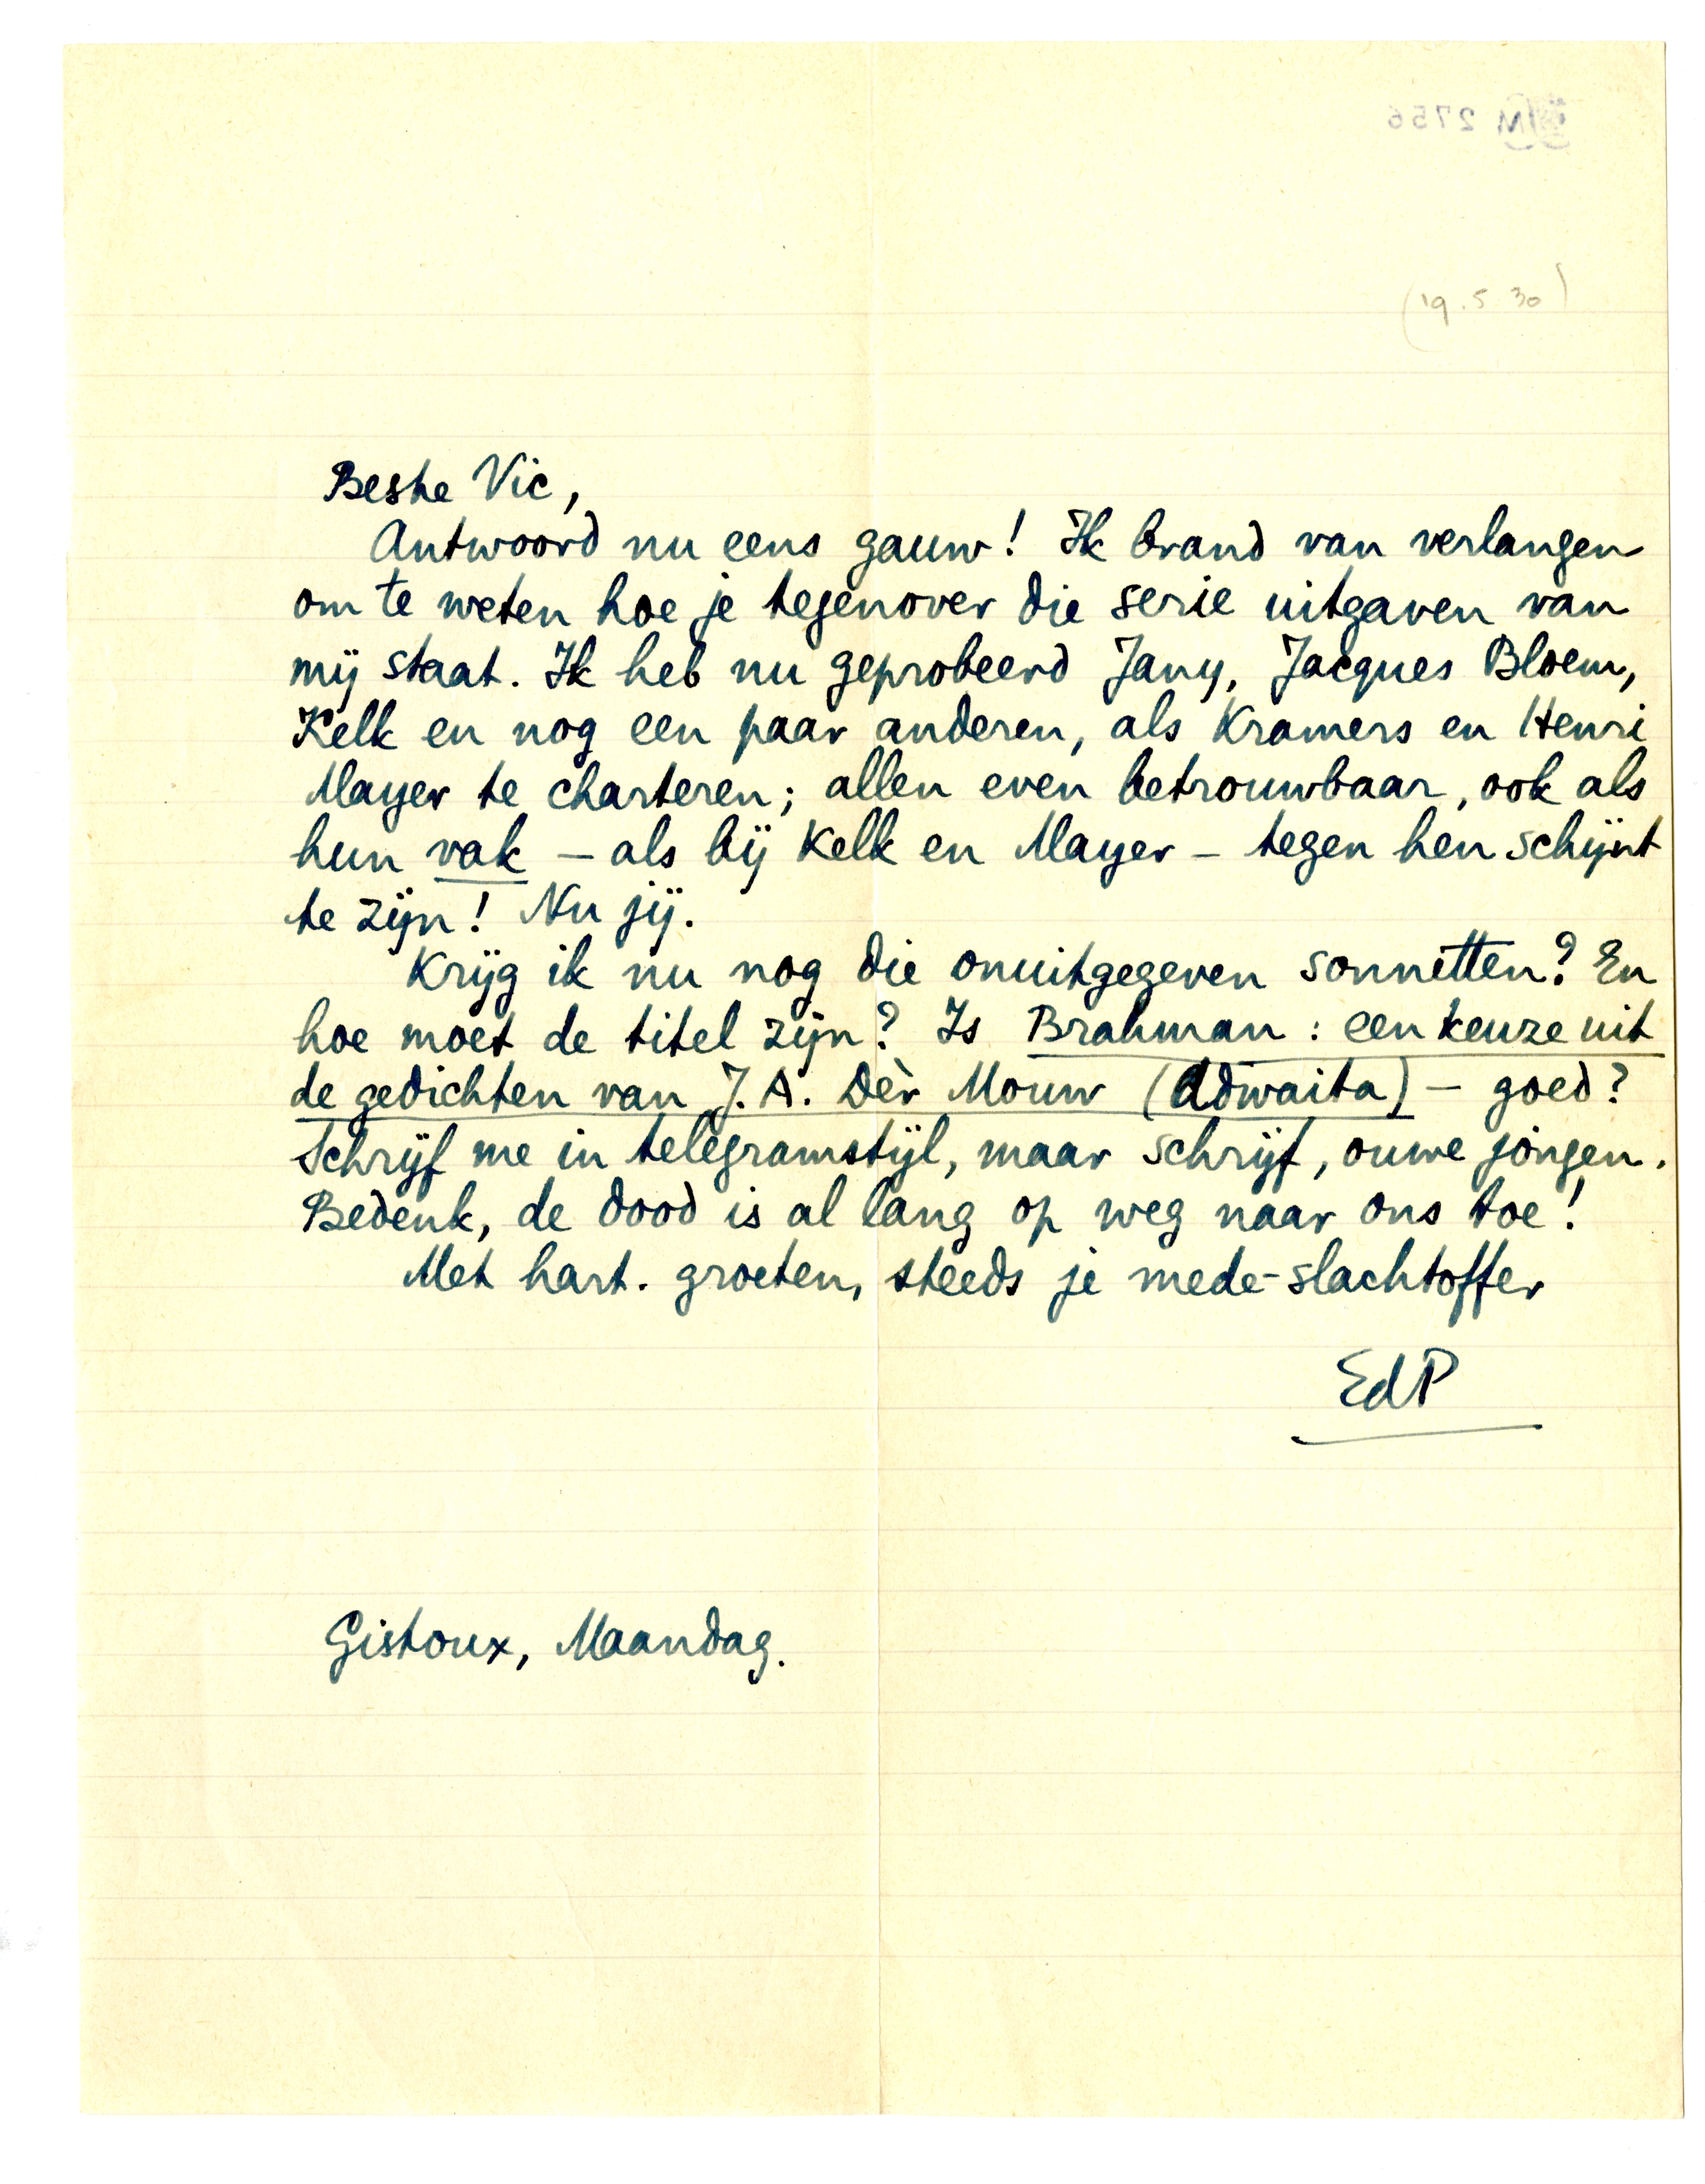 M 2756
(19.5.30)
Beste Vic,
Antwoord nu eens gauw! Ik brand van verlangen
om te weten hoe je tegenover die serie uitgaven van
mij staat. Ik heb nu geprobeerd Jany, Jacques Bloem,
Kelk en nog een paar anderen, als Kramers en Henri
Mayer te charteren; allen even betrouwbaar, ook als
hun vak – als bij Kelk en Mayer – tegen hen schijnt
te zijn! Nu jij.
Krijg ik nu nog die onuitgegeven sonnetten? En
hoe moet de titel zijn? Is Brahman: een keuze uit
de gedichten van J.A. Dèr Mouw (Adwaita) – goed?
Schrijf me in telegramstijl, maar schrijf, ouwe jongen.
Bedenk, de dood is al lang op weg naar ons toe!
Met hart. groeten, steeds je mede-slachtoffer
EdP
Gistoux, Maandag.